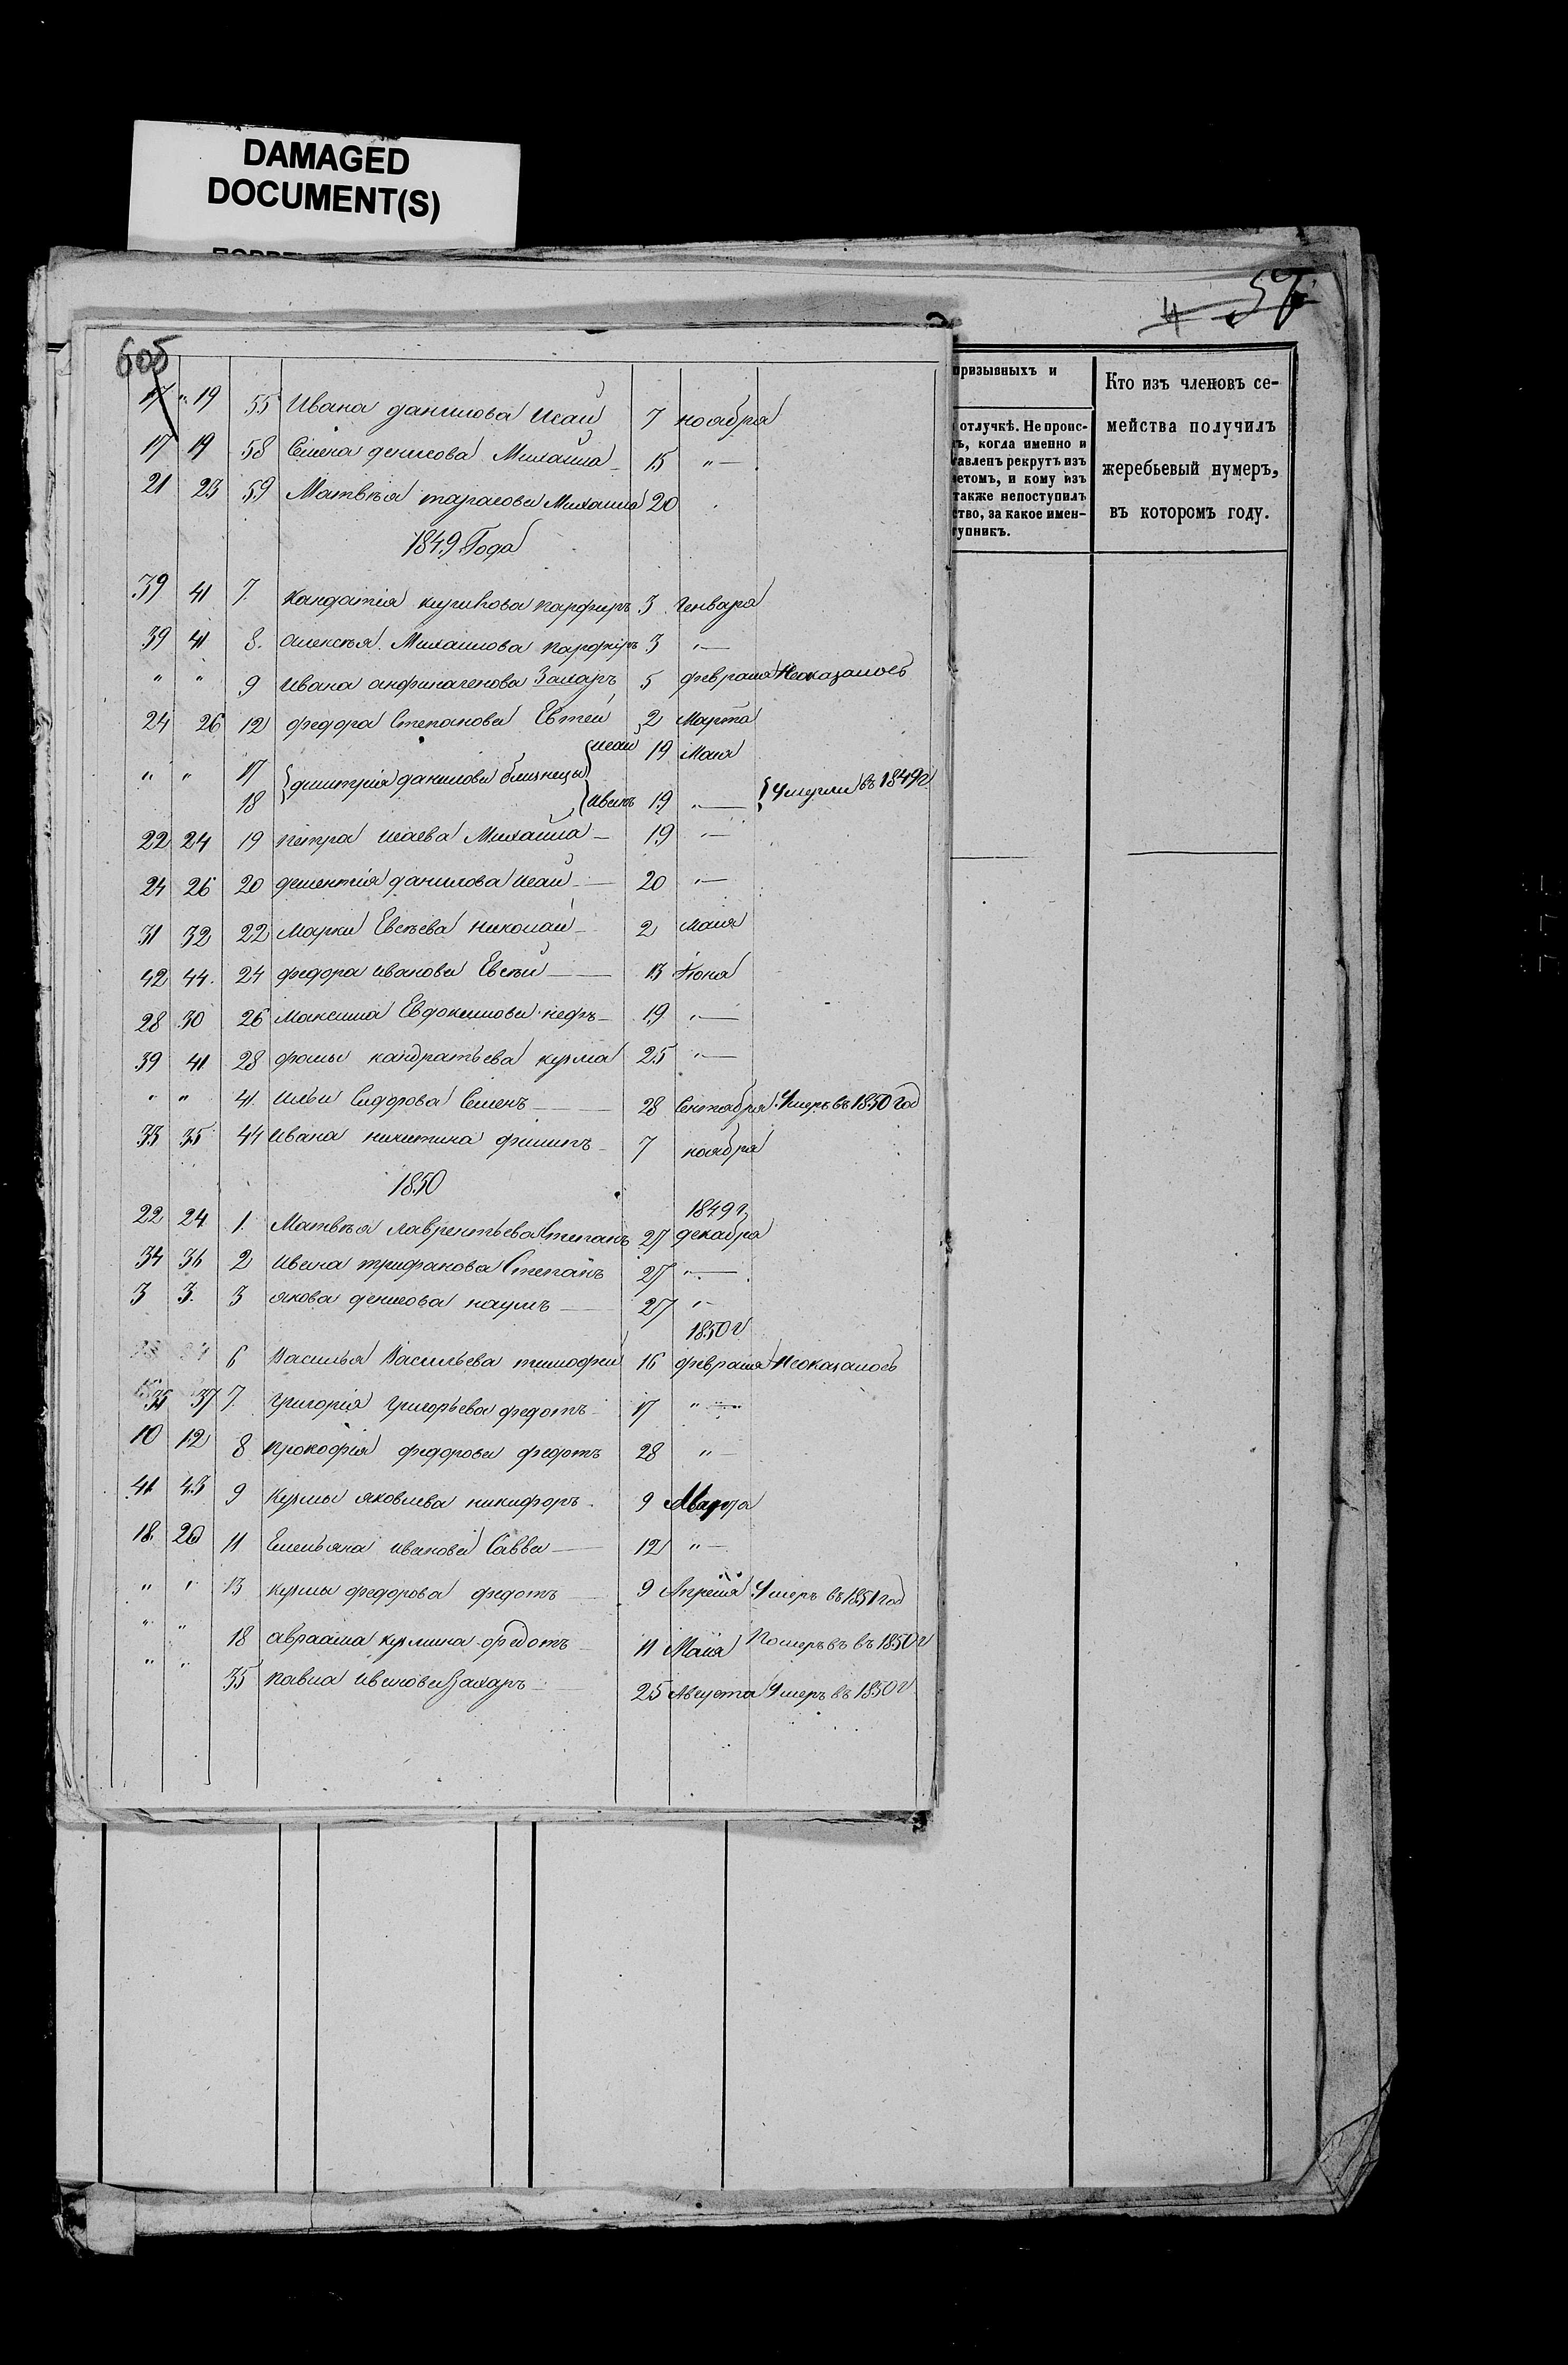 DAMAGED
DOCUMENT(S)
57
605
призывныхъ и
Кто изъ членовъ се-
мейства получилъ
жеребьевый нумеръ,
въ которомъ году.
отлучкѣ. Не проис-
ъ, когда именно и
авленъ рекрутъ изъ
етомъ, и кому изъ
также непоступилъ
ство, за какое имен-
тупникъ.
17 " 19 55 Ивана данилова Исаій 7 ноября
17 19 58 Семена денисова Михаила 15 "
21 23 59 Матвѣя тарасова Михаила 20
1849 Года
39 41 7. Кандатія куприкова парфиръ 3 Генваря
39 41 8. алексѣя Михаилова парфиръ 3 "
" " 9 Ивана Захаръ 5 февраля Неоказалось
24 26 12 федора Степанова Евтей 2 Марта
Исаій 19 Маия
" " 17 дмитрія данилова близнецы
18 Иванъ 19 " Умерли въ 1849 г
22 24 19 петра исаева Михаила 19 "
24 26 20 дементія данилова Исаій 20 "
31 32 22 Марка Евсѣева николай 2 маия
42 44. 24 федора иванова Евсѣй 13 Іюня
28 30 26 Максима Евдокимова 19 "
39 41 28 фомы кандратьева кузма 25 "
" " 41. Ильи Сидорова Семенъ 28 Сентября Умеръ въ 1850 год
33 35 44 Ивана никитина филипъ 7 ноября
1850
1849 г
22 24 1. Матвѣя лаврентьева Степанъ 27 декабря
34 36 2 Ивана трифанова Степанъ 27 "
3 3. 3 якова денисова наумъ 27 "
1850 г
6 Василья Васильева тимофей 16 февраля Неоказалось
35 37 7. григорія григорьева федотъ 17 "
10 12 8 прокофія федорова федотъ 28 "
41 43 9 Кузмы яковлева никифоръ 9 Марта
18. 20 11 Емельяна иванова Савва 12 "
" " 13 кузмы федорова федотъ 9 Апреля Умеръ въ 1851 год
" " 18 авраама кузмина федотъ 11 Маия Померъ въ въ 1850 г
" " 35 павла иванова Захаръ 25 Августа Умеръ въ 1850 г